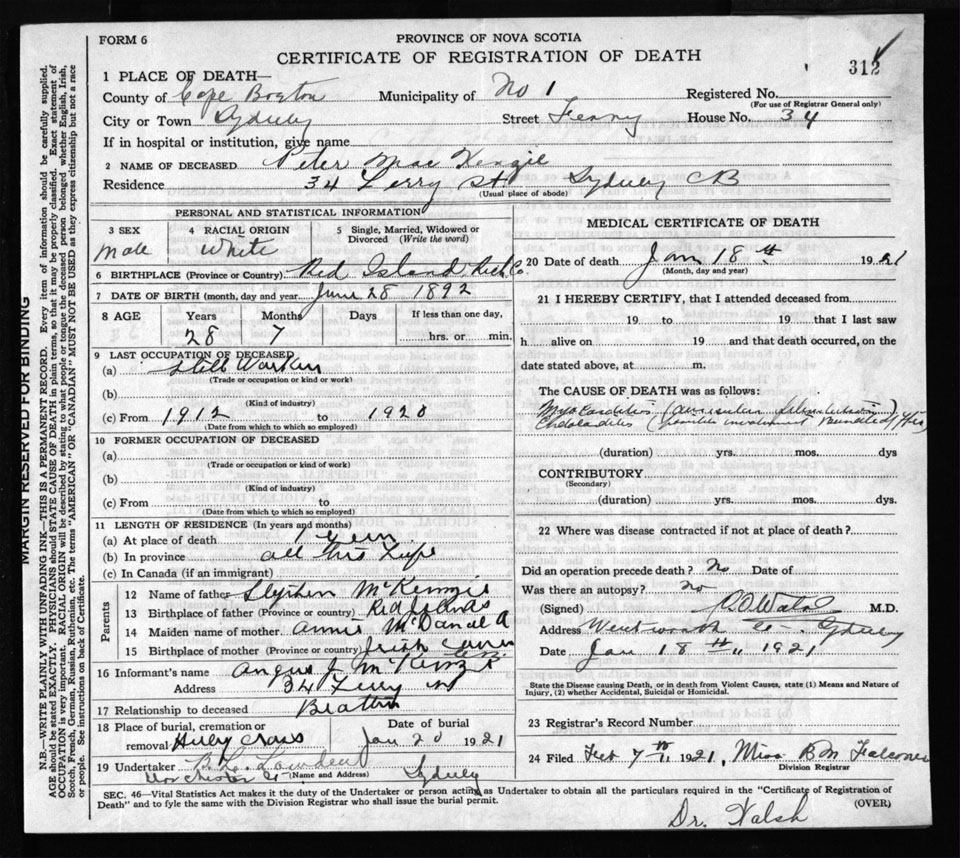 FORM 6
PROVINCE OF NOVA SCOTIA
CERTIFICATE OF REGISTRATION OF DEATH
312
1 PLACE OF DEATH—
County of Cape Breton Municipality of No 1 Registered No.
(For use of Registrar General only)
City or Town Sydney Street Ferry House No. 34
If in hospital or institution, give name
2 NAME OF DECEASED Peter MacKenzie
Residence 34 Ferry St. Sydney CB
(Usual place of abode)
PERSONAL AND STATISTICAL INFORMATION
3 SEX 4 RACIAL ORIGIN 5 Single, Married, Widowed or
Divorced (Write the word)
male White
6 BIRTHPLACE (Province or Country) Red Island Rich Co.
7 DATE OF BIRTH (month, day and year) June 28 1892
8 AGE Years Months Days If less than one day,
28 7 hrs. or min.
9 LAST OCCUPATION OF DECEASED
(a)
(Trade or occupation or kind or work)
(b)
(Kind of industry)
(c) From 1912 to 1920
(Date from which to which so employed)
10 FORMER OCCUPATION OF DECEASED
(a)
(Trade or occupation or kind or work)
(b)
(Kind of industry)
(c) From to
(Date from which to which so employed)
11 LENGTH OF RESIDENCE (In years and months)
(a) At place of death
(b) In province all his Life
(c) In Canada (if an immigrant)
Parents
12 Name of father Stephen McKenzie
13 Birthplace of father (Province or country) Red Islands
14 Maiden name of mother Annie McDonald
15 Birthplace of mother (Province or country) Irish Cove
C.B.
16 Informant's name Angus J McKenzie
Address 34 Ferry St
17 Relationship to deceased Brother
18 Place of burial, cremation or Date of burial
removal Holy Cross Jan 20 1921
19 Undertaker Lowden
Dorchester St (Name and Address) Sydney
MEDICAL CERTIFICATE OF DEATH
20 Date of death Jan 18th 1921
(Month, day and year)
21 I HEREBY CERTIFY, that I attended deceased from
19 to 19 that I last saw
h alive on 19 and that death occurred, on the
date stated above, at m.
The CAUSE OF DEATH was as follows:
Myocarditis (Auricular
Endocarditis ( involvement
(duration) yrs. mos. dys
CONTRIBUTORY
(Secondary)
(duration) yrs. mos. dys.
22 Where was disease contracted if not at place of death?
Did an operation precede death? No Date of
Was there an autopsy? no
(Signed) M.D.
Address Wentworth St. Sydney
Date Jan 18th 1921
State the Disease causing Death, or in death from Violent Causes, state (1) Means and Nature of
Injury, (2) whether Accidental, Suicidal or Homicidal.
23 Registrar's Record Number
24 Filed Feb 7th 1921, Miss B M Falconer
Division Registrar
SEC. 46—Vital Statistics Act makes it the duty of the Undertaker or person acting as Undertaker to obtain all the particulars required in the "Certificate of Registration of
Death" and to fyle the same with the Division Registrar who shall issue the burial permit.
(OVER)
Dr. Walsh
MARGIN RESERVED FOR BINDING
N.B.—WRITE PLAINLY WITH UNFADING INK—THIS IS A PERMANENT RECORD. Every item of information should be carefully supplied.
AGE should be stated EXACTLY. PHYSICIANS should STATE CAUSE OF DEATH in plain terms, so that it may be properly classified. Exact statement of
OCCUPATION is very important. RACIAL ORIGIN will be described by stating to what people or tongue the deceased person belonged, whether English, Irish,
Scotch, French, German, Russian, Ruthenian, etc. The terms "AMERICAN" OR "CANADIAN" MUST NOT BE USED as they express citizenship but not a race
or people. See instructions on back of Certificate.